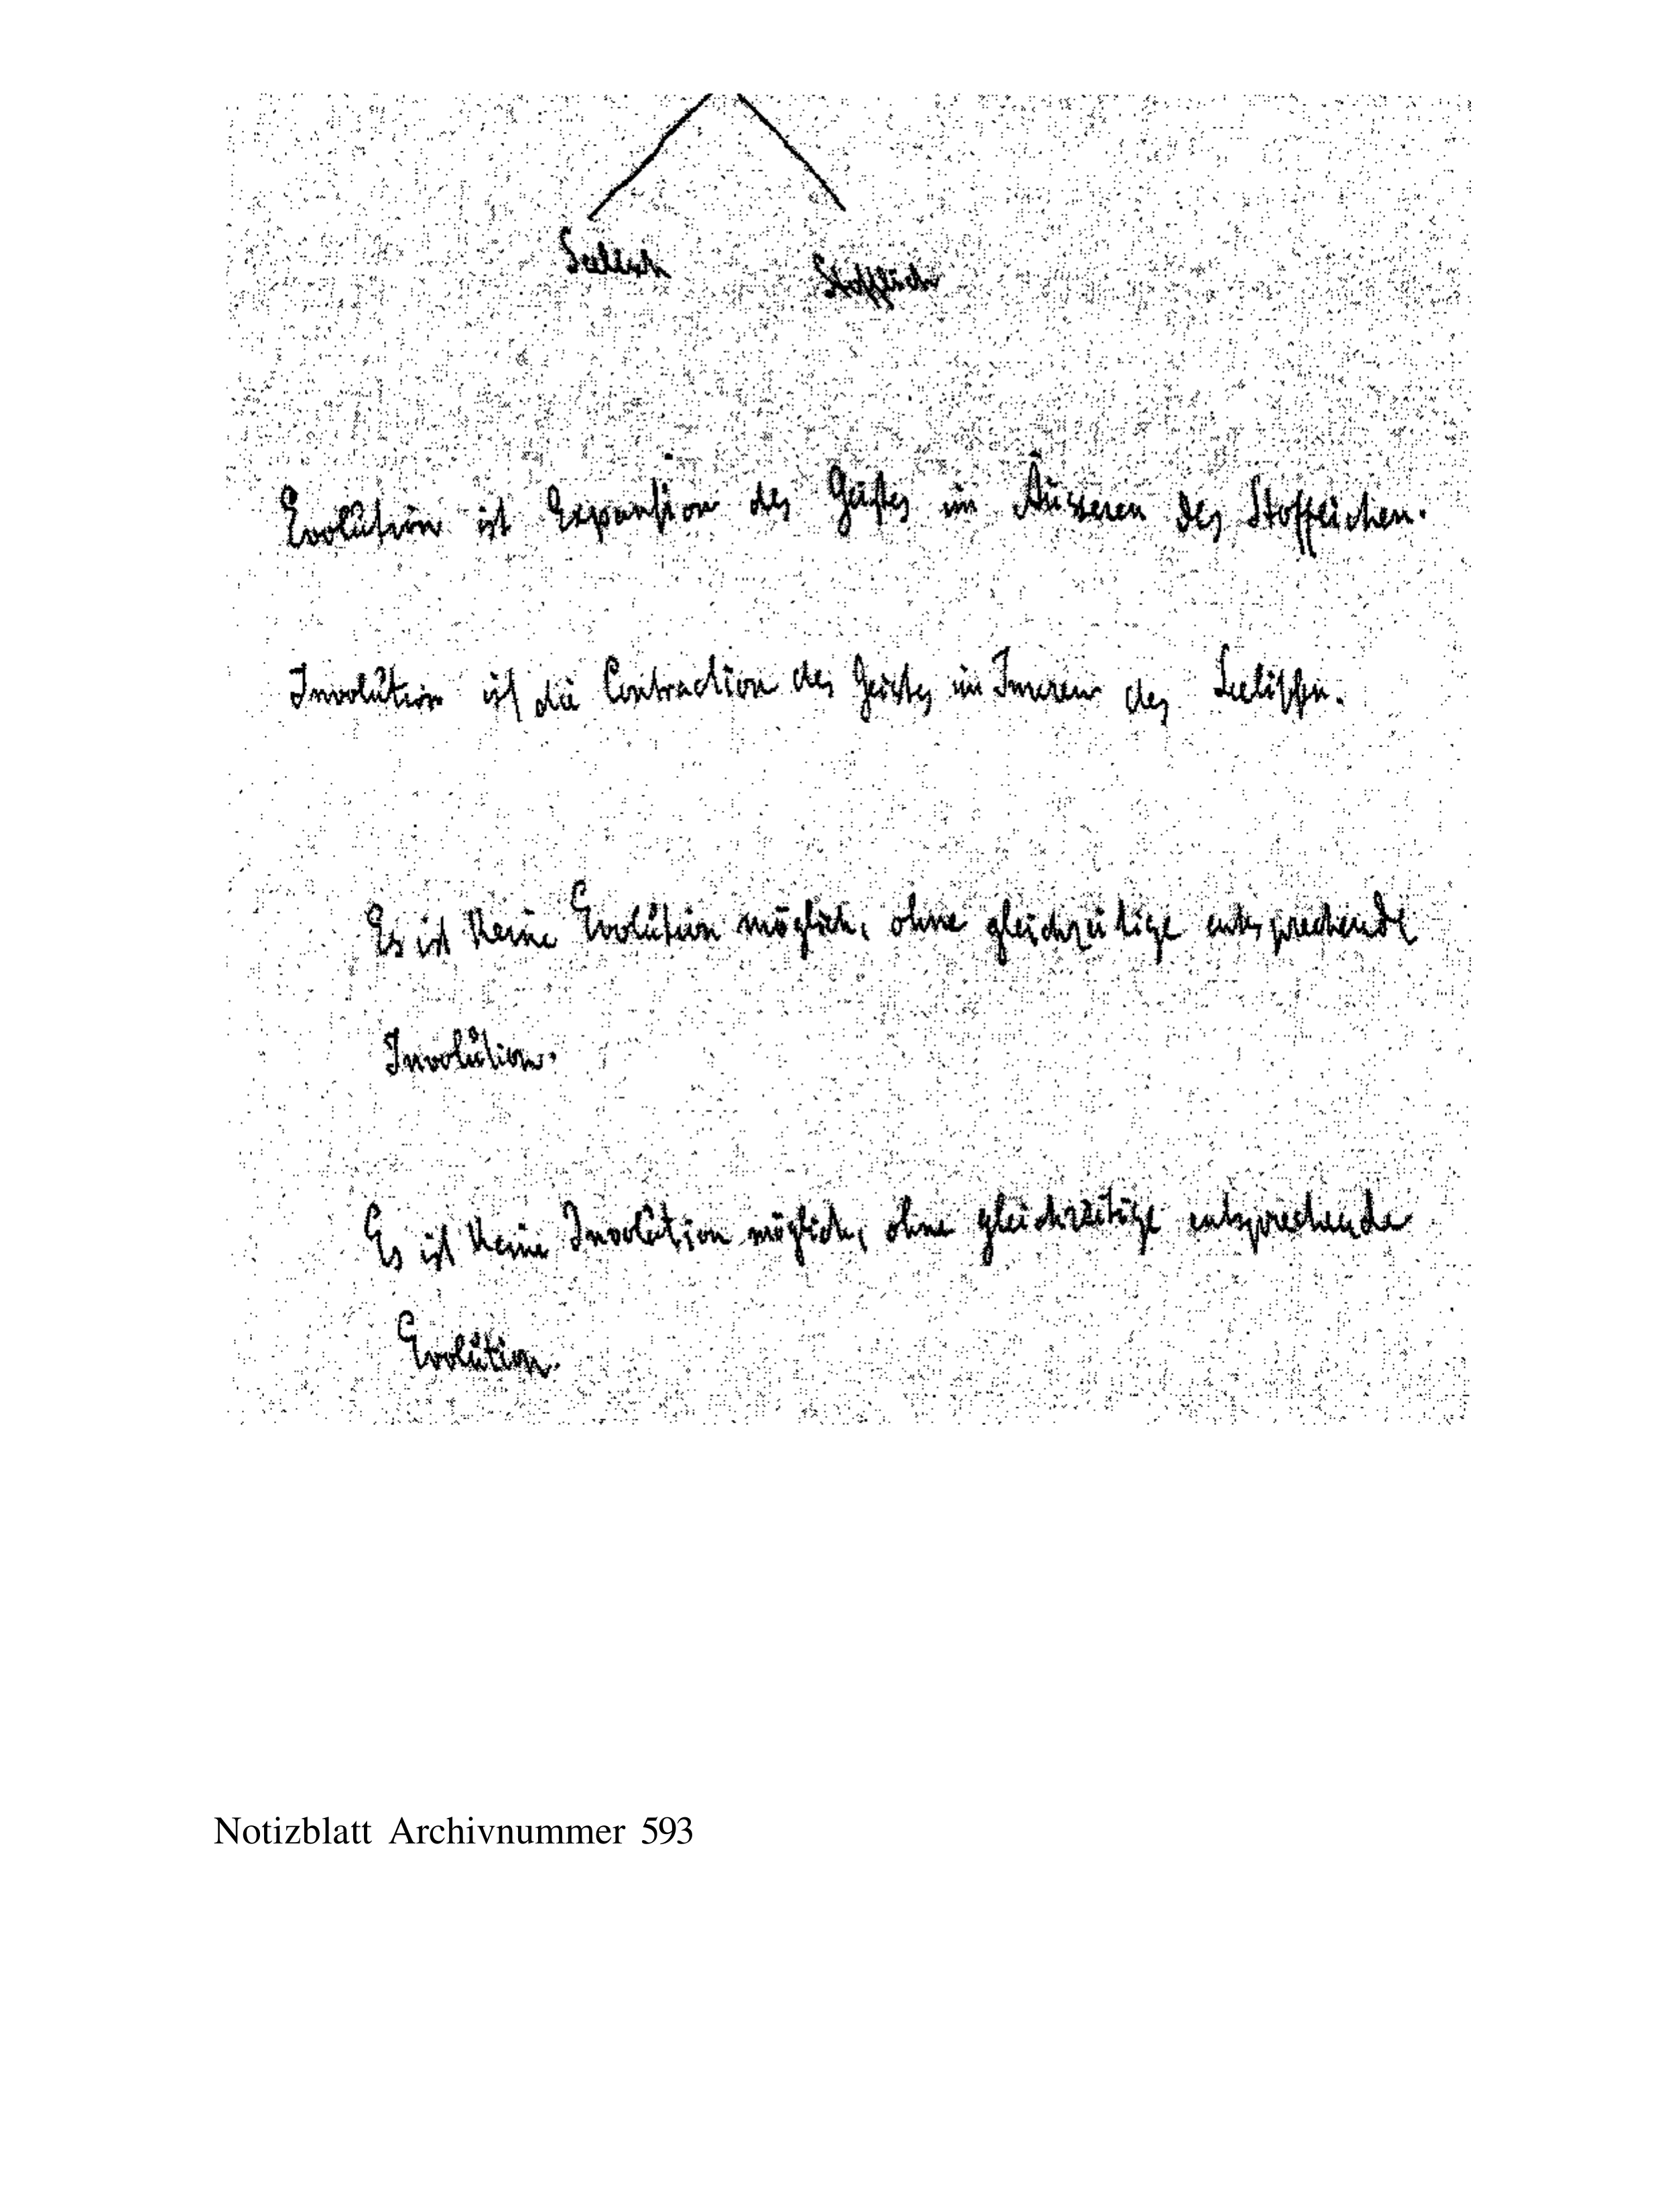 Seelisch Stofflich
Evolution ist Expansion des Geistes im Äusseren des Stofflichen.
Involution ist die Contraction des Geistes im Inneren des Seelischen.
Es ist keine Evolution möglich, ohne gleichzeitige entsprechende
Involution.
Es ist keine Involution möglich, ohne gleichzeitige entsprechende
Evolution.
Notizblatt Archivnummer 593